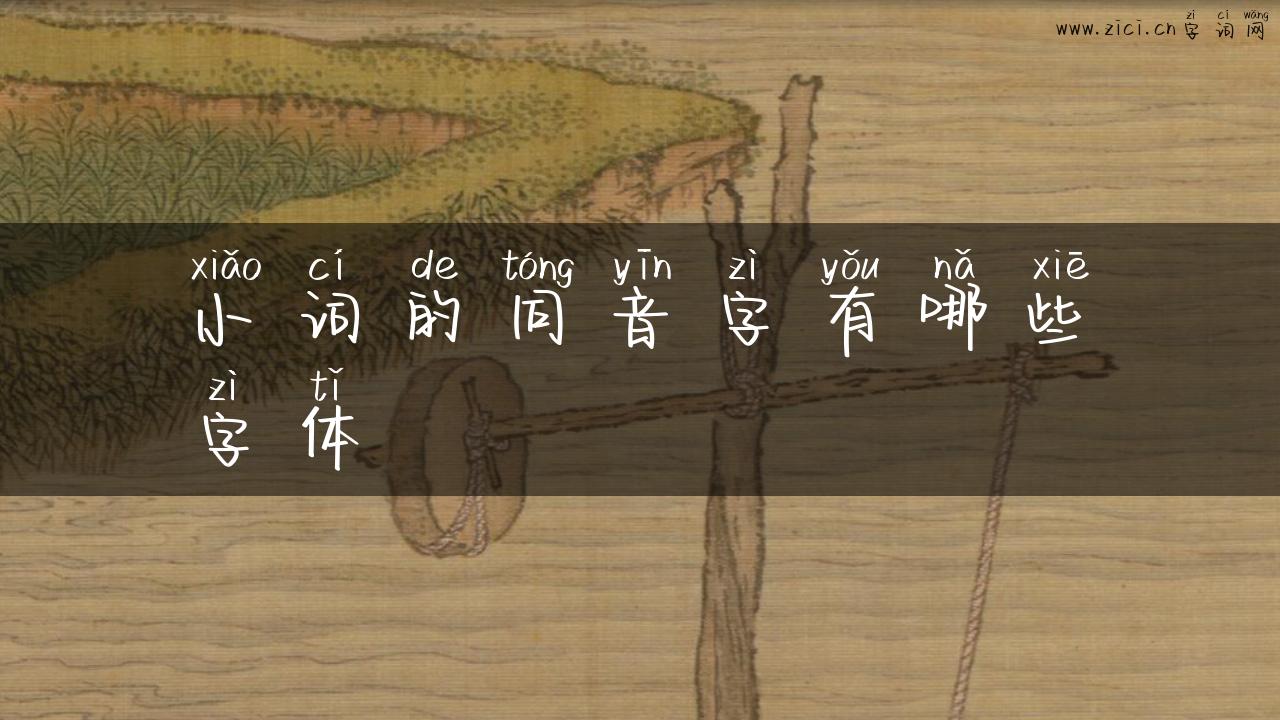 zì cí wǎng
www.zici.cn 字词网
xiǎo cí de tóng yīn zì yǒu nǎ xiē
小词的同音字有哪些
zì tǐ
字体